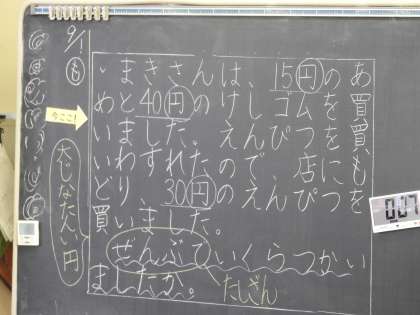 9/1
も
まきさんは、15円のあ
めと40円のけしゴムを買
いました。えんぴつを買
いわすれたので、店にも
どり、30円のえんぴつを
買いました。
ぜんぶでいくらつかい
ましたか。 たしざん
今ここ!
大じなたんい、円